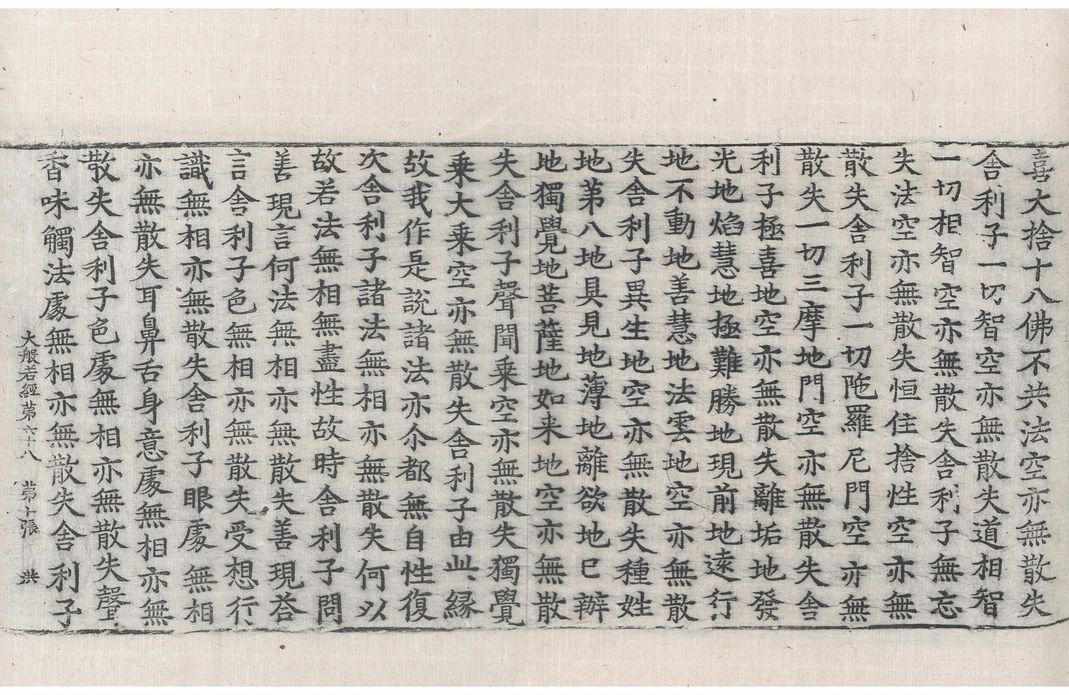 喜大捨十八佛不共法空亦無散失
舍利子一切智空亦無散失道相智
一切相智空亦無散失舍利子無忘
失法空亦無散失恒住捨性空亦無
散失舍利子一切陁羅尼門空亦無
散失一切三摩地門空亦無散失舍
利子極喜地空亦無散失離垢地發
光地焰慧地極難勝地現前地遠行
地不動地善慧地法雲地空亦無散
失舍利子異生地空亦無散失種姓
地第八地具見地薄地離欲地已辦
地獨覺地菩薩地如来地空亦無散
失舍利子聲聞乗空亦無散失獨覺
乗大乗空亦無散失舍利子由此緣
故我作是說諸法亦尒都無自性復
次舍利子諸法無相亦無散失何以
故若法無相無盡性故時舍利子問
善現言何法無相亦無散失善現荅
言舍利子色無相亦無散失受想行
識無相亦無散失舍利子眼處無相
亦無散失耳鼻舌身意處無相亦無
散失舍利子色處無相亦無散失聲
香味觸法處無相亦無散失舍利子
大般若經第六十八 第十張 洪